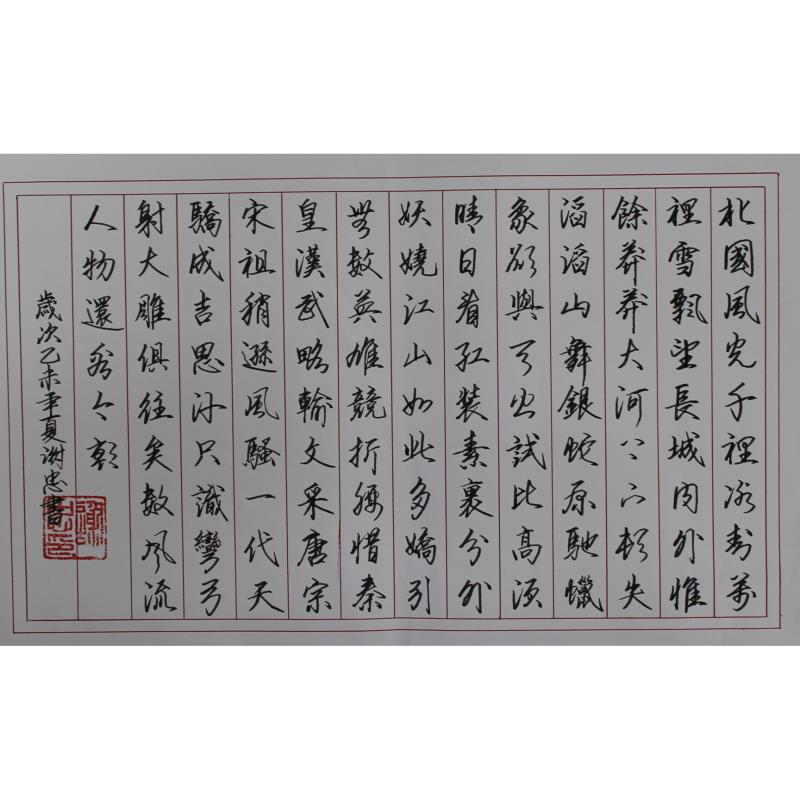 北國風光千裡冰封萬
裡雪飄望長城內外惟
餘莽莽大河上下頓失
滔滔山舞銀蛇原馳蠟
象欲與天公試比高須
晴日看紅装素裹分外
妖嬈江山如此多嬌引
無數英雄競折腰惜秦
皇漢武略輸文采唐宗
宋祖稍遜風騷一代天
驕成吉思汗只識彎弓
射大雕俱往矣數風流
人物還看今朝
歲次乙未年夏謝忠書